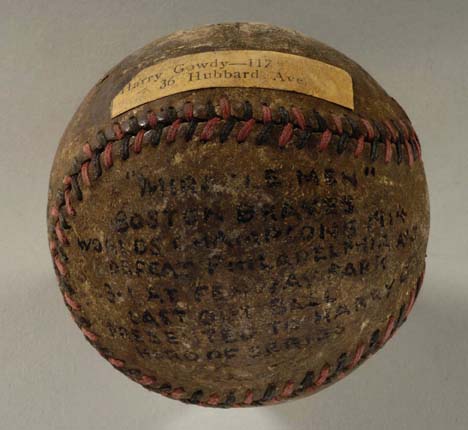 Harry Gowdy—117
36 Hubbard Ave.
"MIRACLE MEN"
BOSTON BRAVES
WORLDS CHAMPIONS 1914
DEFEAT PHILADELPHIA
3-1 AT FENWAY PARK
LAST BALL
PRESENTED TO HARRY
HERO OF SERIES